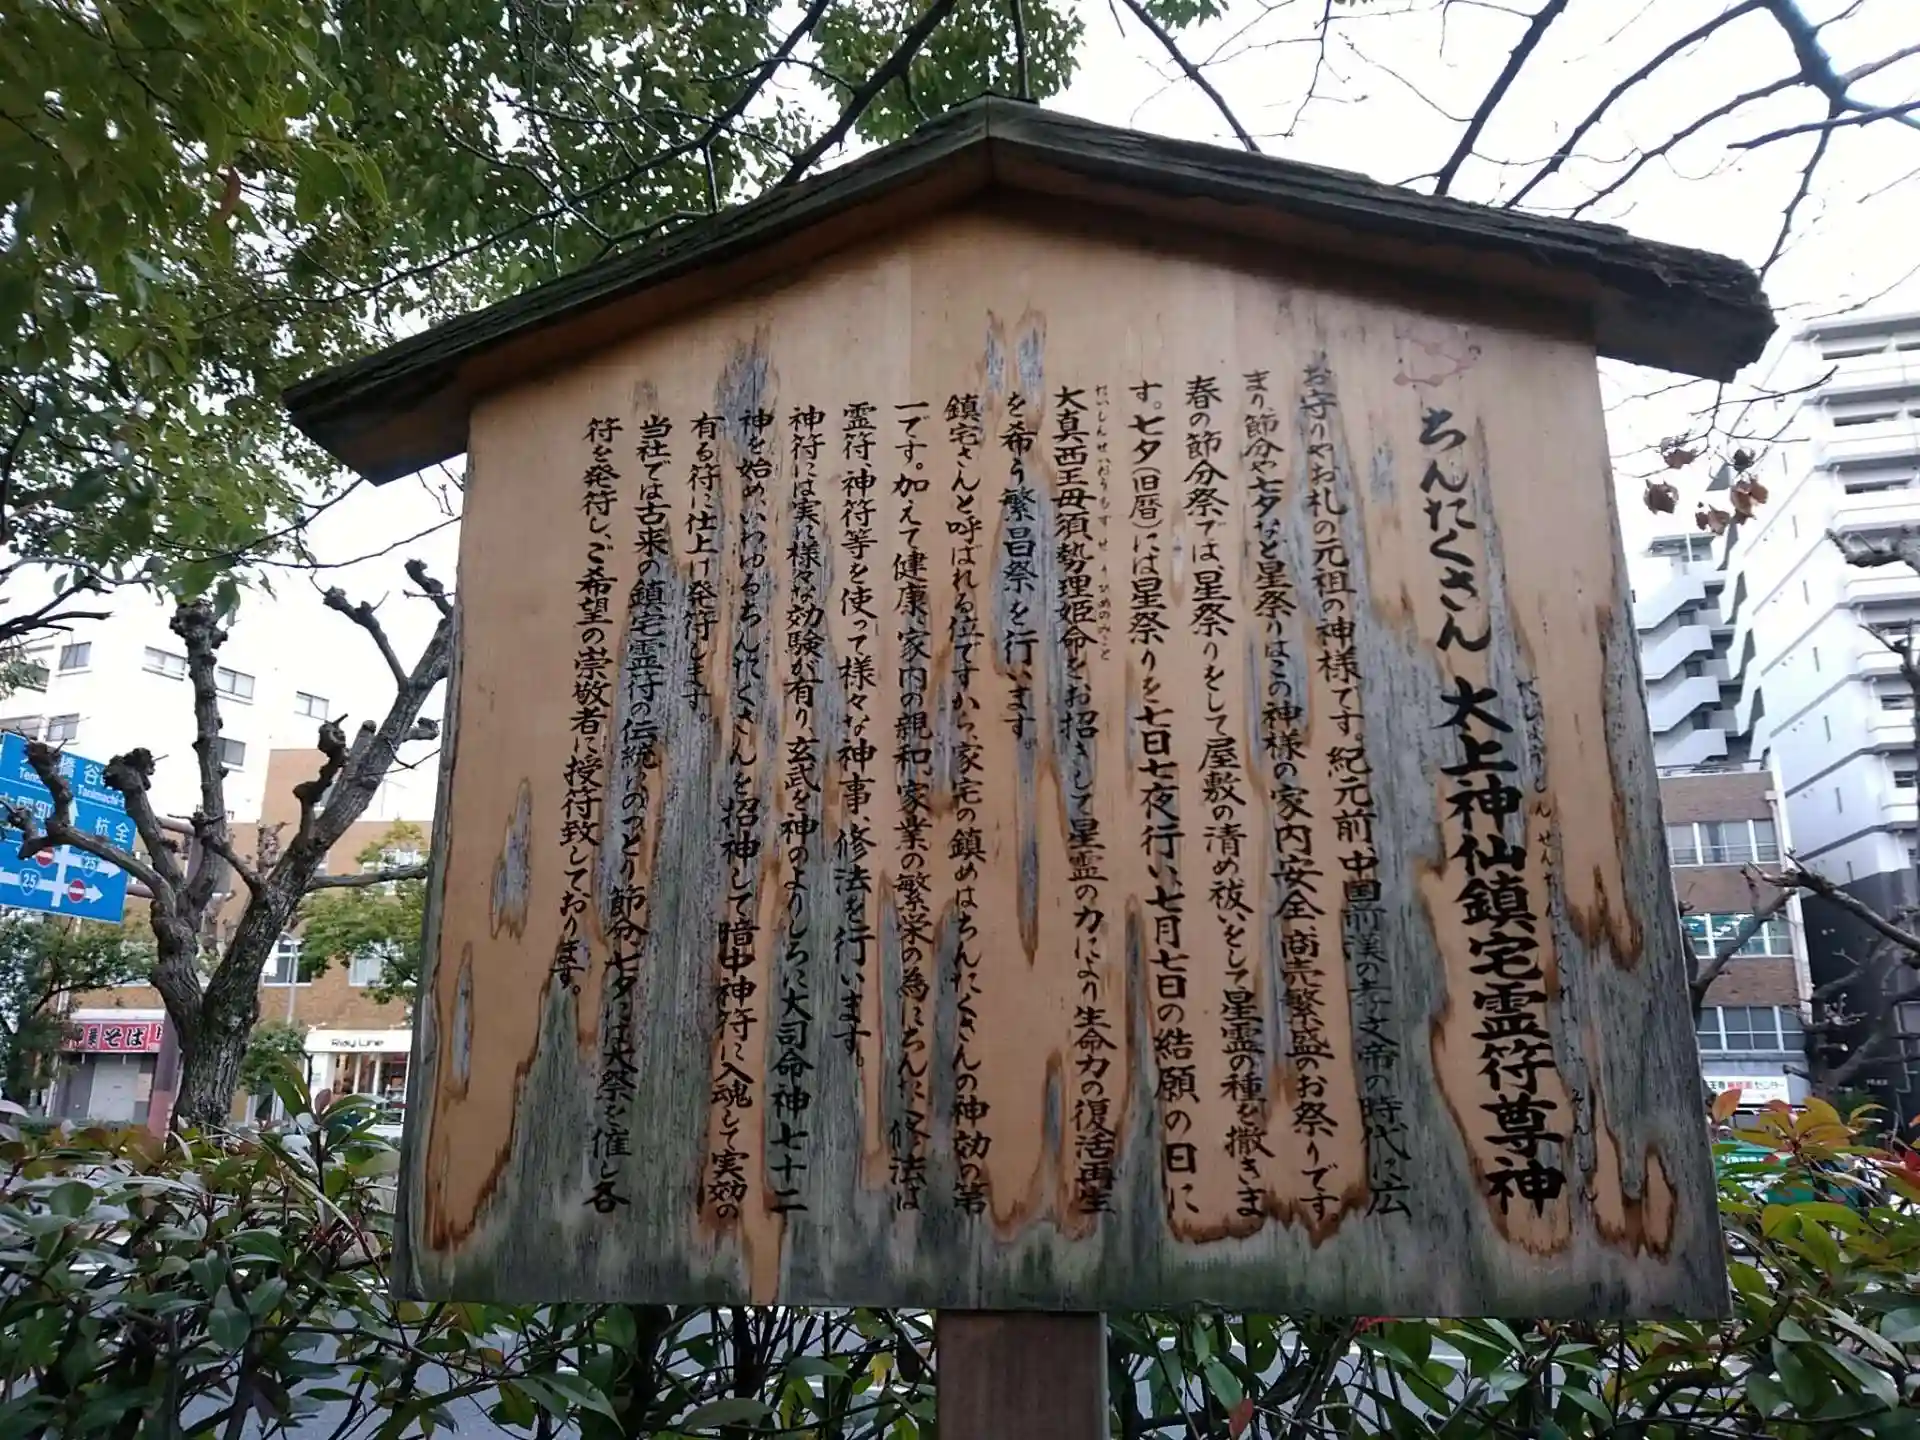 ちんたくさん 太上神仙鎮宅霊符尊神
たいじょうしんせんちんたくれいふそんしん
お守りやお札の元祖の神様です。紀元前、中国前漢の孝文帝の時代に広
まり、節分や七夕など星祭りはこの神様の家内安全、商売繁盛のお祭りです。
春の節分祭では、星祭りをして屋敷の清め祓いをして星霊の種を撒きま
す。七夕(旧暦)には星祭りを七日七夜行い、七月七日の結願の日に
たいしんせいおうもすせりひめのみこと
大真西王母須勢理姫命をお招きして星霊の力により生命力の復活再生
を希う繁昌祭を行います。
鎮宅さんと呼ばれる位ですから、家宅の鎮めはちんたくさんの神効の第
一です。加えて健康、家内の親和、家業の繁栄の為にちんたく修法は
霊符、神符等を使って様々な神事、修法を行います。
神符には実に様々な効験が有り、玄武を神のよりしろに大司命神七十二
神を始め、いわゆるちんたくさんを招神して暗中神符に入魂して実効の
有る符に仕上げ発符します。
当社では古来の鎮宅霊符の伝統にのっとり節分、七夕には大祭を催し各
符を発符し、ご希望の崇敬者に授符致しております。
谷
Tanimachi
杭全
25
25
そば
Ray Line
センター